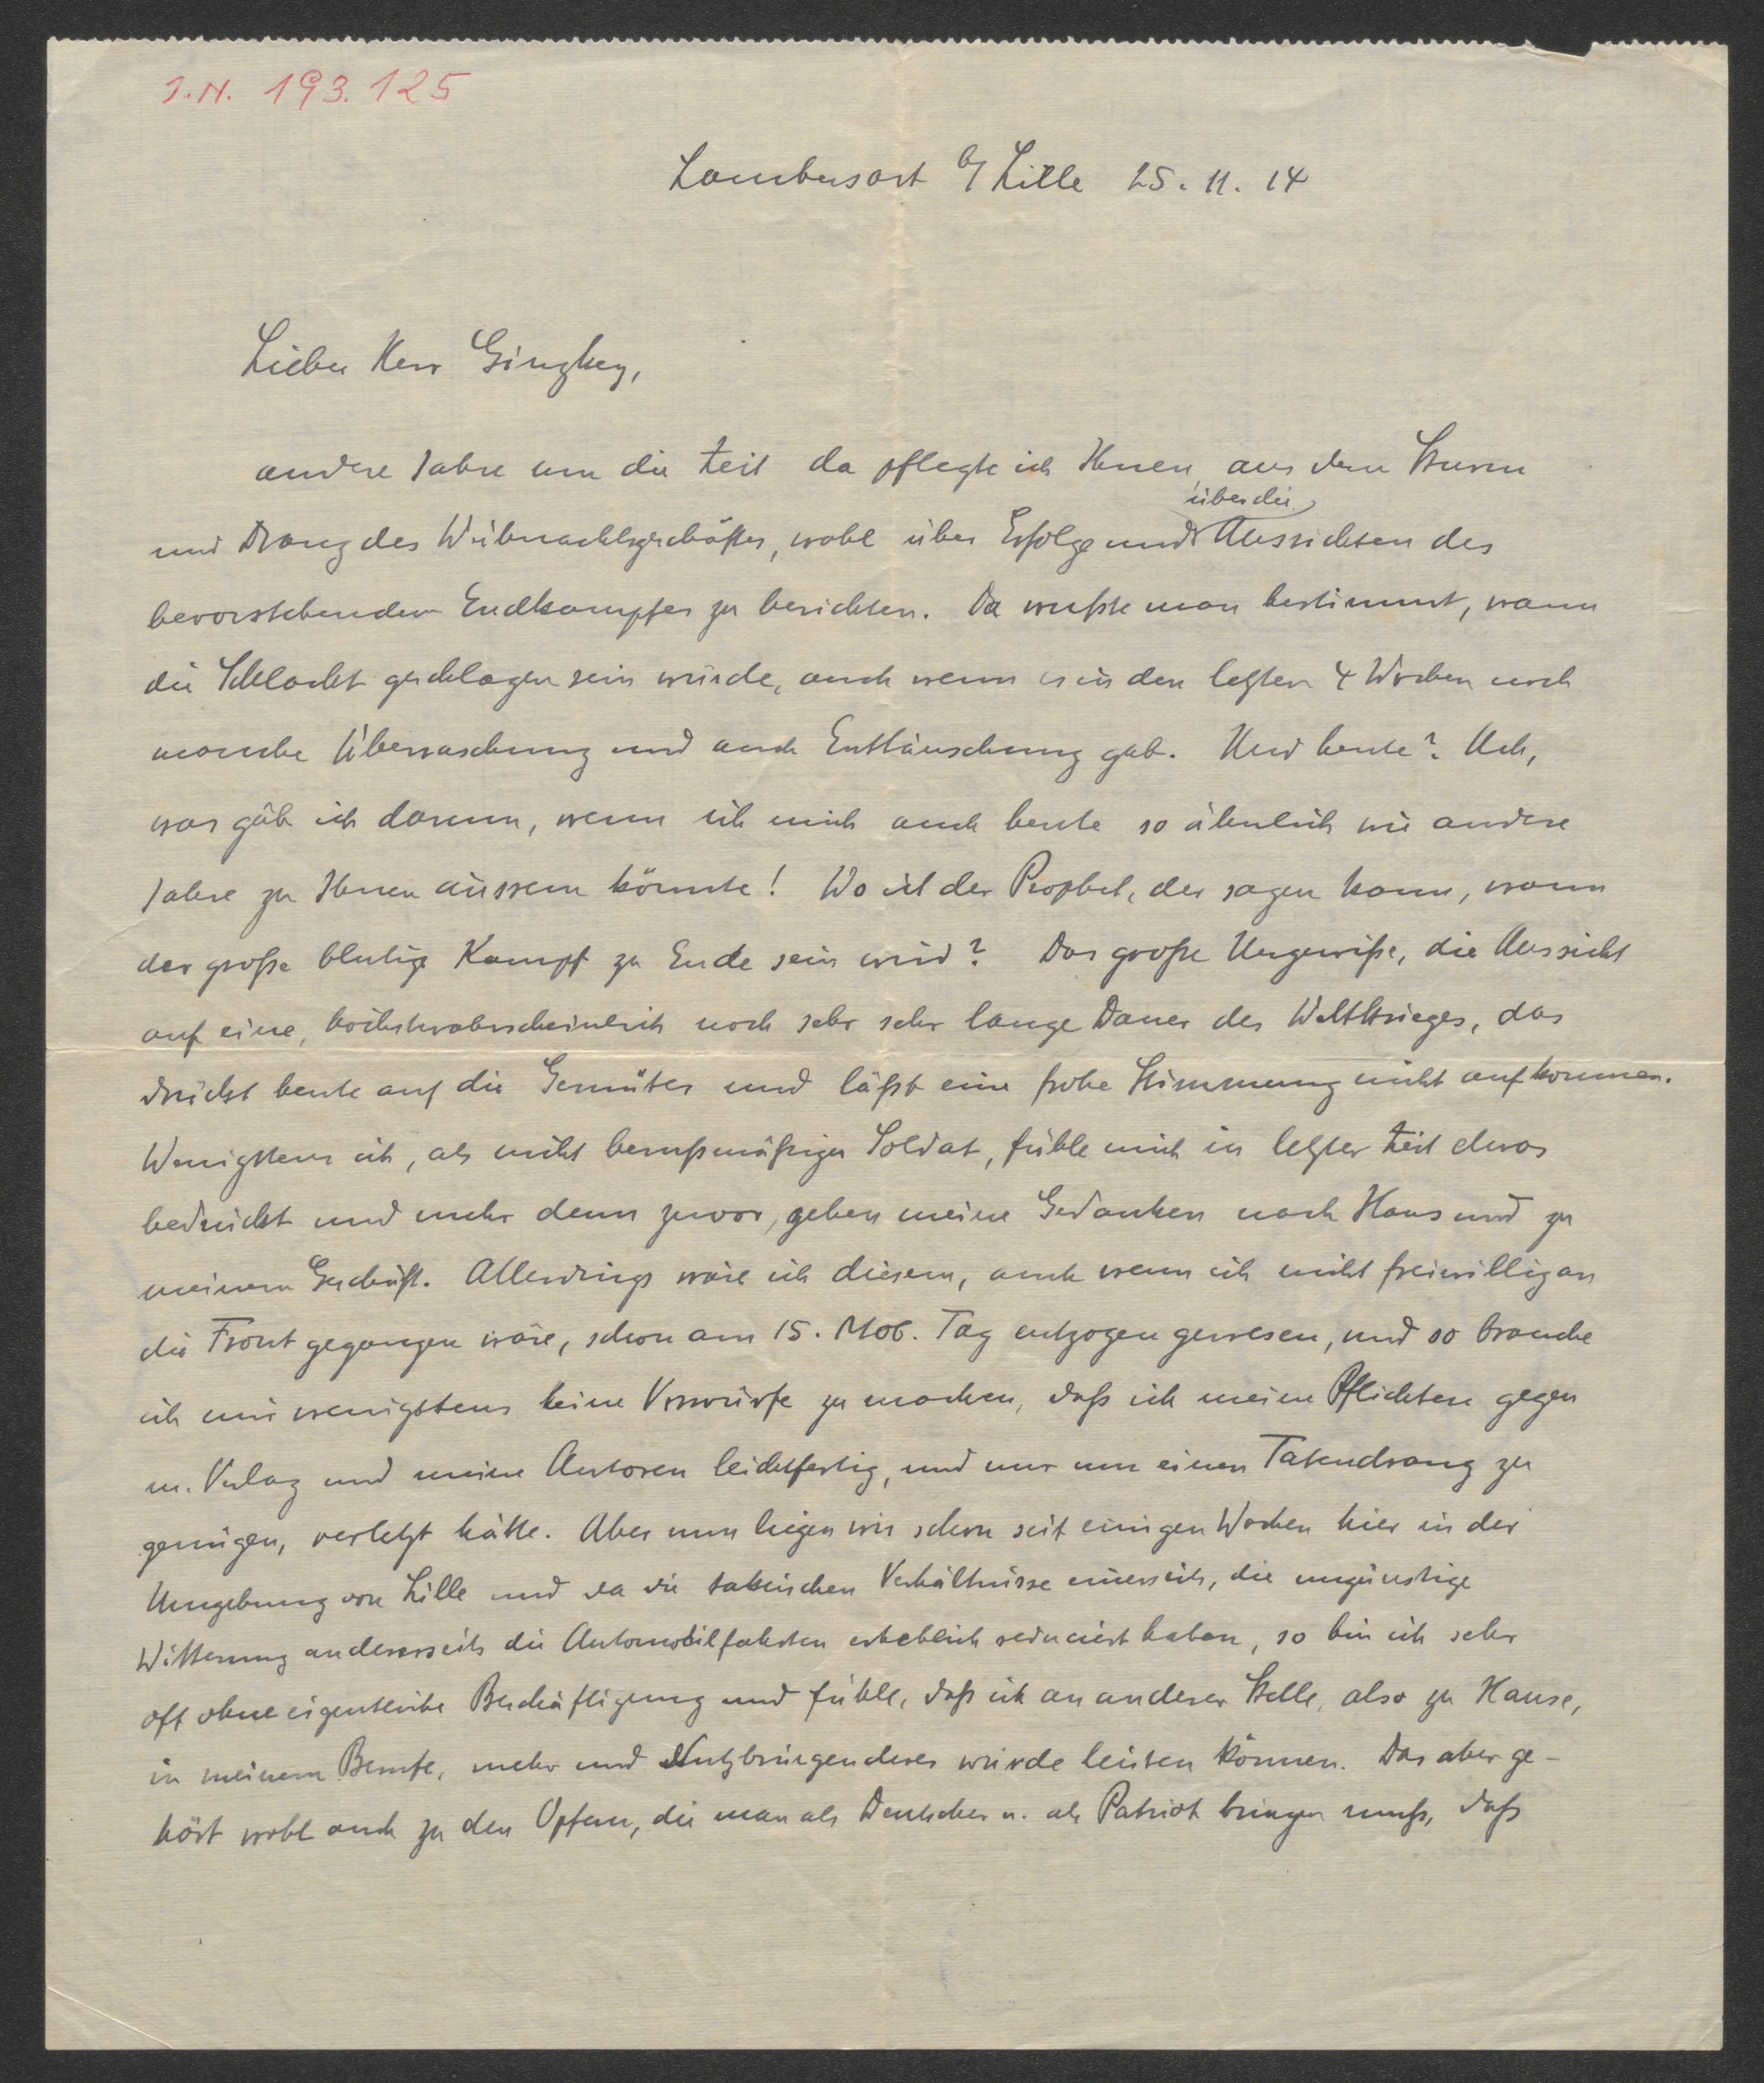 I.N. 193.125
Lambersart b/ Lille 25.11.14
Lieber Herr Ginzkey,
andere Jahre um die Zeit da pflegte ich Ihnen, aus dem Sturm
über die
und Drang des Weihnachtsgeschäftes, wohl über Erfolge und Aussichten des
bevorstehenden Endkampfes zu berichten. Da wußte man bestimmt, wann
die Schlacht geschlagen sein würde, auch wenn es in den letzten 4 Wochen noch
manche Überraschung und auch Enttäuschung gab. Und heute? Ach,
was gäb ich darum, wenn ich mich auch heute so ähnlich wie andere
Jahre zu Ihnen äussern könnte! Wo ist der Prophet, der sagen kann, wann
der große blutige Kampf zu Ende sein wird? Das große Ungewiße, die Aussicht
auf eine, höchstwahrscheinlich noch sehr sehr lange Dauer des Weltkrieges, das
drückt heute auf die Gemüter und läßt eine frohe Stimmung nicht aufkommen.
Wenigstens ich, als nicht berufsmäßiger Soldat, fühle mich in letzter Zeit etwas
bedrückt und mehr denn zuvor, gehen meine Gedanken nach Haus und zu
meinem Geschäft. Allerdings wäre ich diesem, auch wenn ich nicht freiwillig an
die Front gegangen wäre, schon am 15. Mob. Tag entzogen gewesen, und so brauche
ich mir wenigstens keine Vorwürfe zu machen, daß ich meine Pflichten gegen
m. Verlag und meine Autoren leichtfertig, und nur um einen Tatendrang zu
genügen, verletzt hätte. Aber nun liegen wir schon seit einigen Wochen hier in der
Umgebung von Lille und da die taktischen Verhältnisse einerseits, die ungünstige
Witterung andererseits die Automobilfahrten erheblich reduciert haben, so bin ich sehr
oft ohne eigentliche Beschäftigung und fühle, daß ich an anderer Stelle, also zu Hause,
in meinem Berufe, mehr und Nutzbringenderes würde leisten können. Das aber ge-
hört wohl auch zu den Opfern, die man als Deutscher u. als Patriot bringen muß, daß